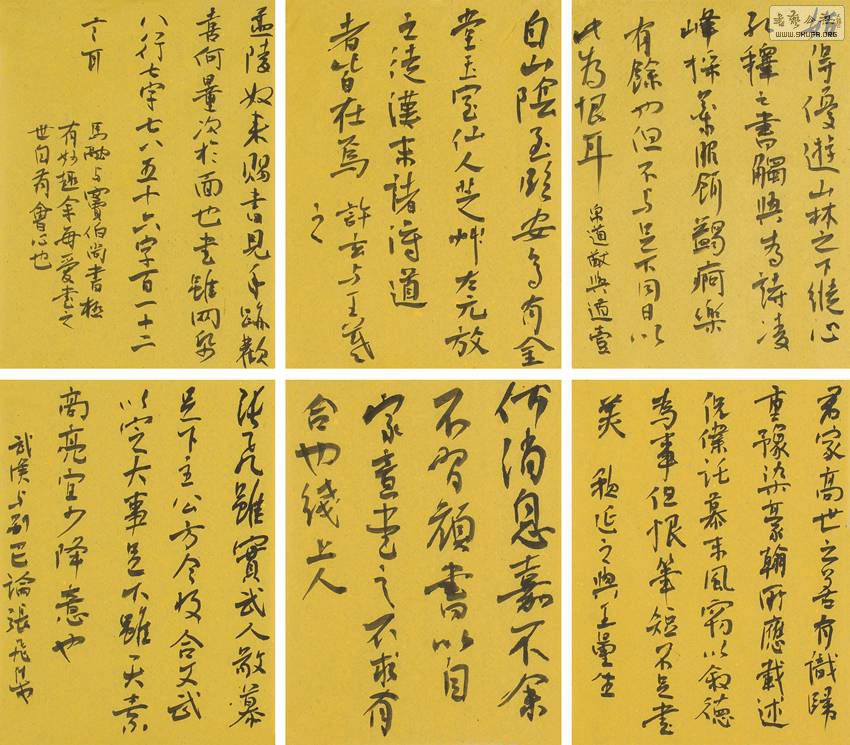 得優遊山林之下縱心
孔釋之書觸興為詩凌
峰採藥服餌蠲痾樂
有餘也但不與足下同日以
此為恨耳 帛道猷與道壹
自山陰至臨安多有金
堂玉室仙人芝艸左元放
之徒漢末諸得道
者皆在焉 許玄與王羲
之
孟陵奴來賜書見手跡歡
喜何量次於面也書雖兩紙
八行七字七八五十六字百一十二
言耳
馬融與竇伯尚書極
有妙趣余每愛書之
世自有會心也
君家高世之善有識歸
重豫染豪翰所應載述
況僕託慕末風竊以敘德
為事但恨筆短不足書
美 顏延之與王曇生
何消息嘉不余
不習顏書以自
家意書之不求有
合也 上人
張飛雖實武人敬慕
足下主公方今收合文武
以定大事足下雖天素
高亮宜少降意也
武侯與劉巴論張飛書
WWW.SHUFA.ORG